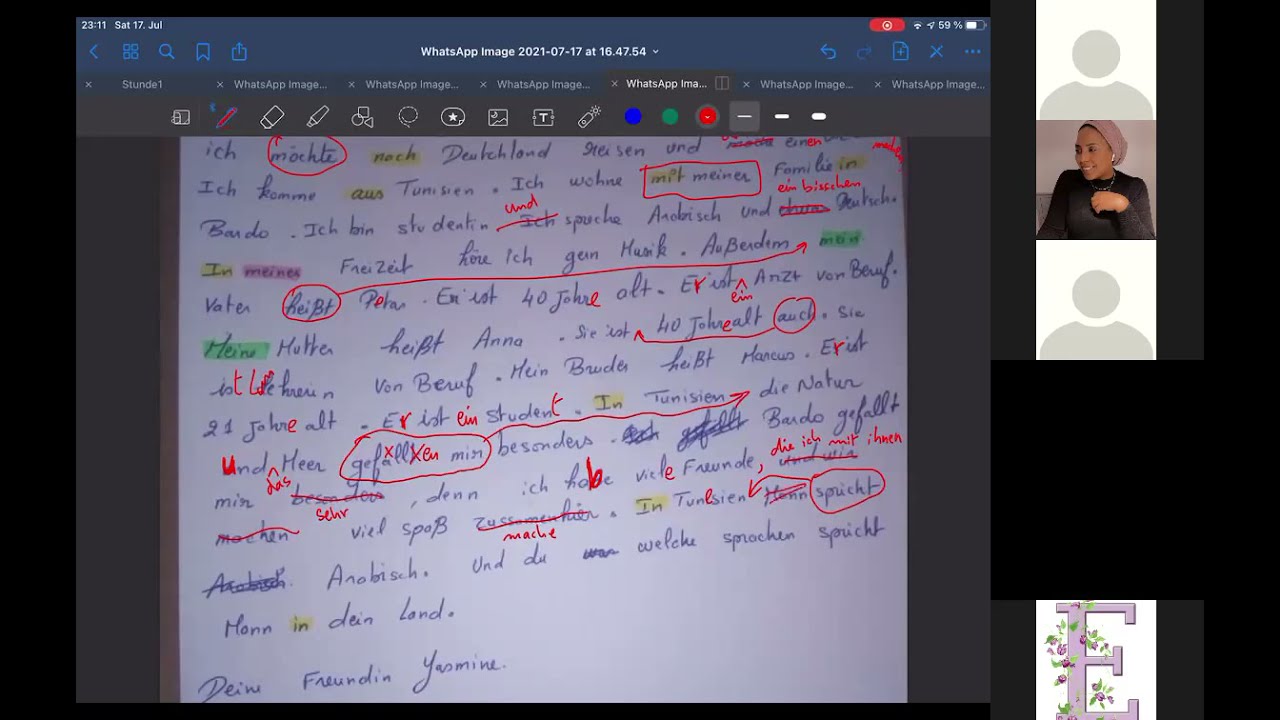 23:11 Sat 17. Jul
59 %
WhatsApp Image 2021-07-17 at 16.47.54
Stunde1
WhatsApp Image...
WhatsApp Image...
WhatsApp Image...
WhatsApp Ima...
WhatsApp Image...
WhatsApp Image...
T
ich möchte nach Deutchland reisen und einen
Ich komme aus Tunisien. Ich wohne mit meiner Familie in
ein bisschen
und
Bardo. Ich bin studentin Ich spreche Arabisch und Deutsch.
In meiner Freizeit höre ich gern Musik. Außerdem mein
Vater heißt Petar. Er ist 40 Jahre alt. Er ist Arzt von Beruf.
ein
Meine Mutter heißt Anna. Sie ist 40 Jahre alt auch. Sie
ist Lehrerin von Beruf. Mein Bruder heißt Marcus. Er ist
21 Jahre alt. Er ist ein student. In Tunisien die Natur
und Meer gefallen mir besonders. Bardo gefällt
das
die ich mit ihnen
mir besonders, denn ich habe viele Freunde, und wir
sehr
machen viel spaß zusammen hier. In Tunesien Mann spricht
mache
Arabisch. Arabisch. Und du welche sprachen spricht
Mann in dein Land.
Deine Freundin Yasmine.
E